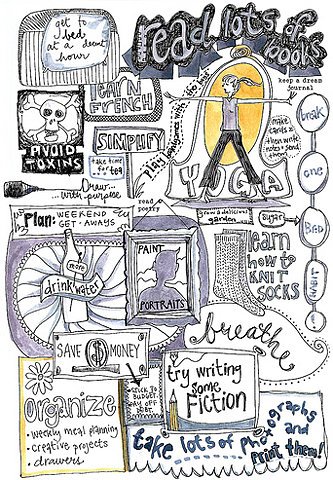 get to
bed
at a decent
hour
read lots of
books
LEARN
FRENCH
AVOID
TOXINS
SIMPLIFY
take time
for tea
Draw...
...with purpose
Play
with the kids
keep a dream
journal
make
cards &
then write
notes & send
them...
YOGA
break
one
BAD
HABIT
read
poetry
Plan: WEEKEND
GET-AWAYS
grow a delicious
garden
sugar
learn
how to
KNIT
SOCKS
more
drink water
PAINT
PORTRAITS
breathe
SAVE $ MONEY
STICK TO
BUDGET
PAY OFF
DEBT.
try writing
some
FICTION
ORGANIZE
• weekly meal planning
• creative projects
• drawers
take lots of photographs
and
print them!